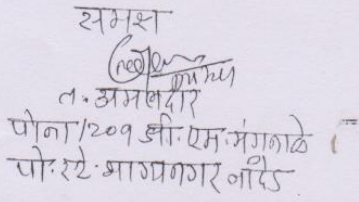 समक्ष
त. अमलदार
पोना/209 डी. एम. मंगनाळे
पो. स्टे. भाग्यनगर नांदेड